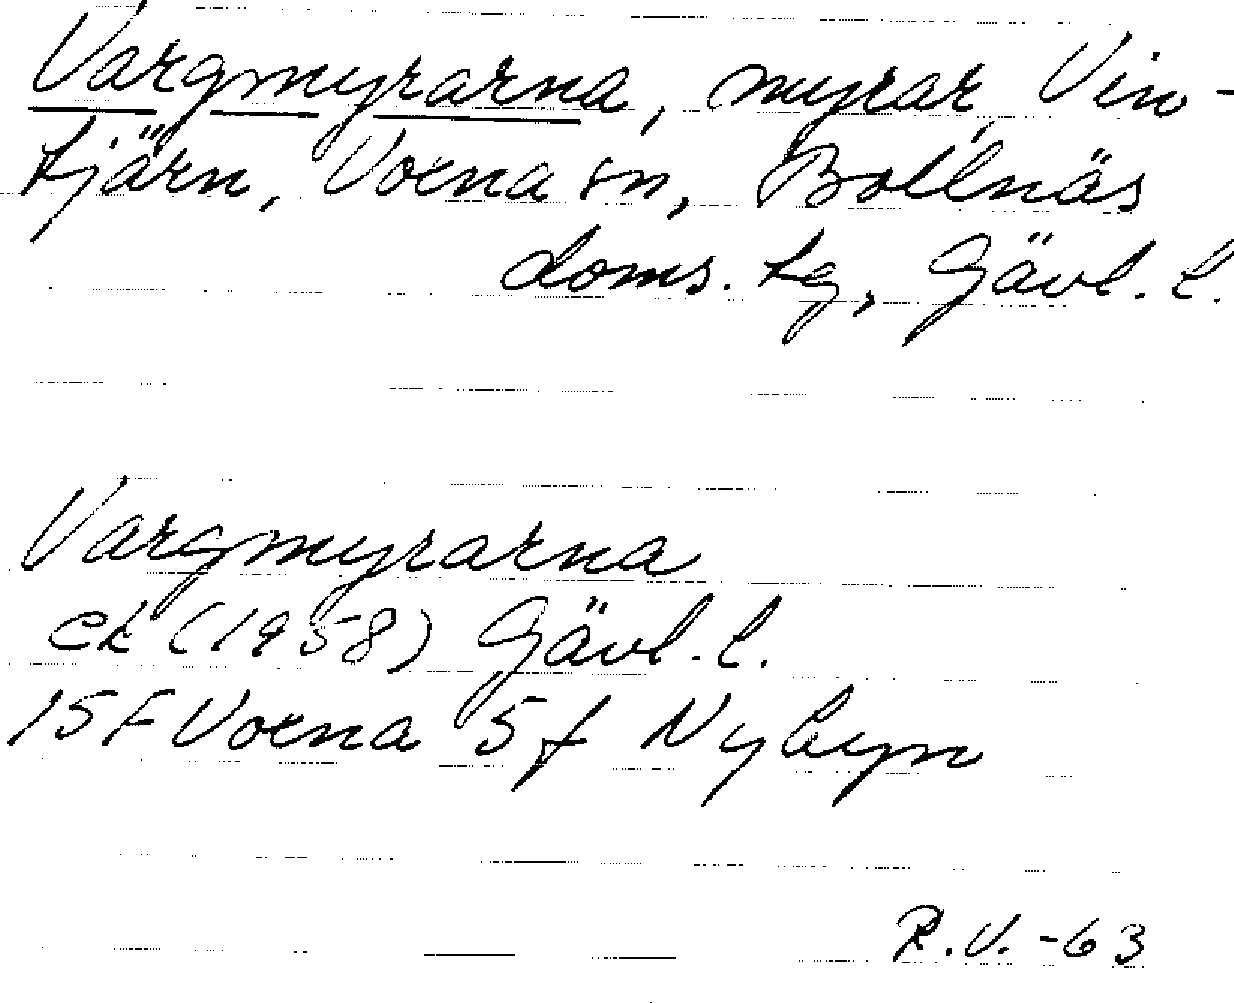 Vargmyrarna, myrar, Vin-
tjärn, Voxna sn, Bollnäs
doms. tg, Gävl. l.
Vargmyrarna
ek (1958) Gävl. l.
15F Voxna 5f Nybyn
R.V. -63